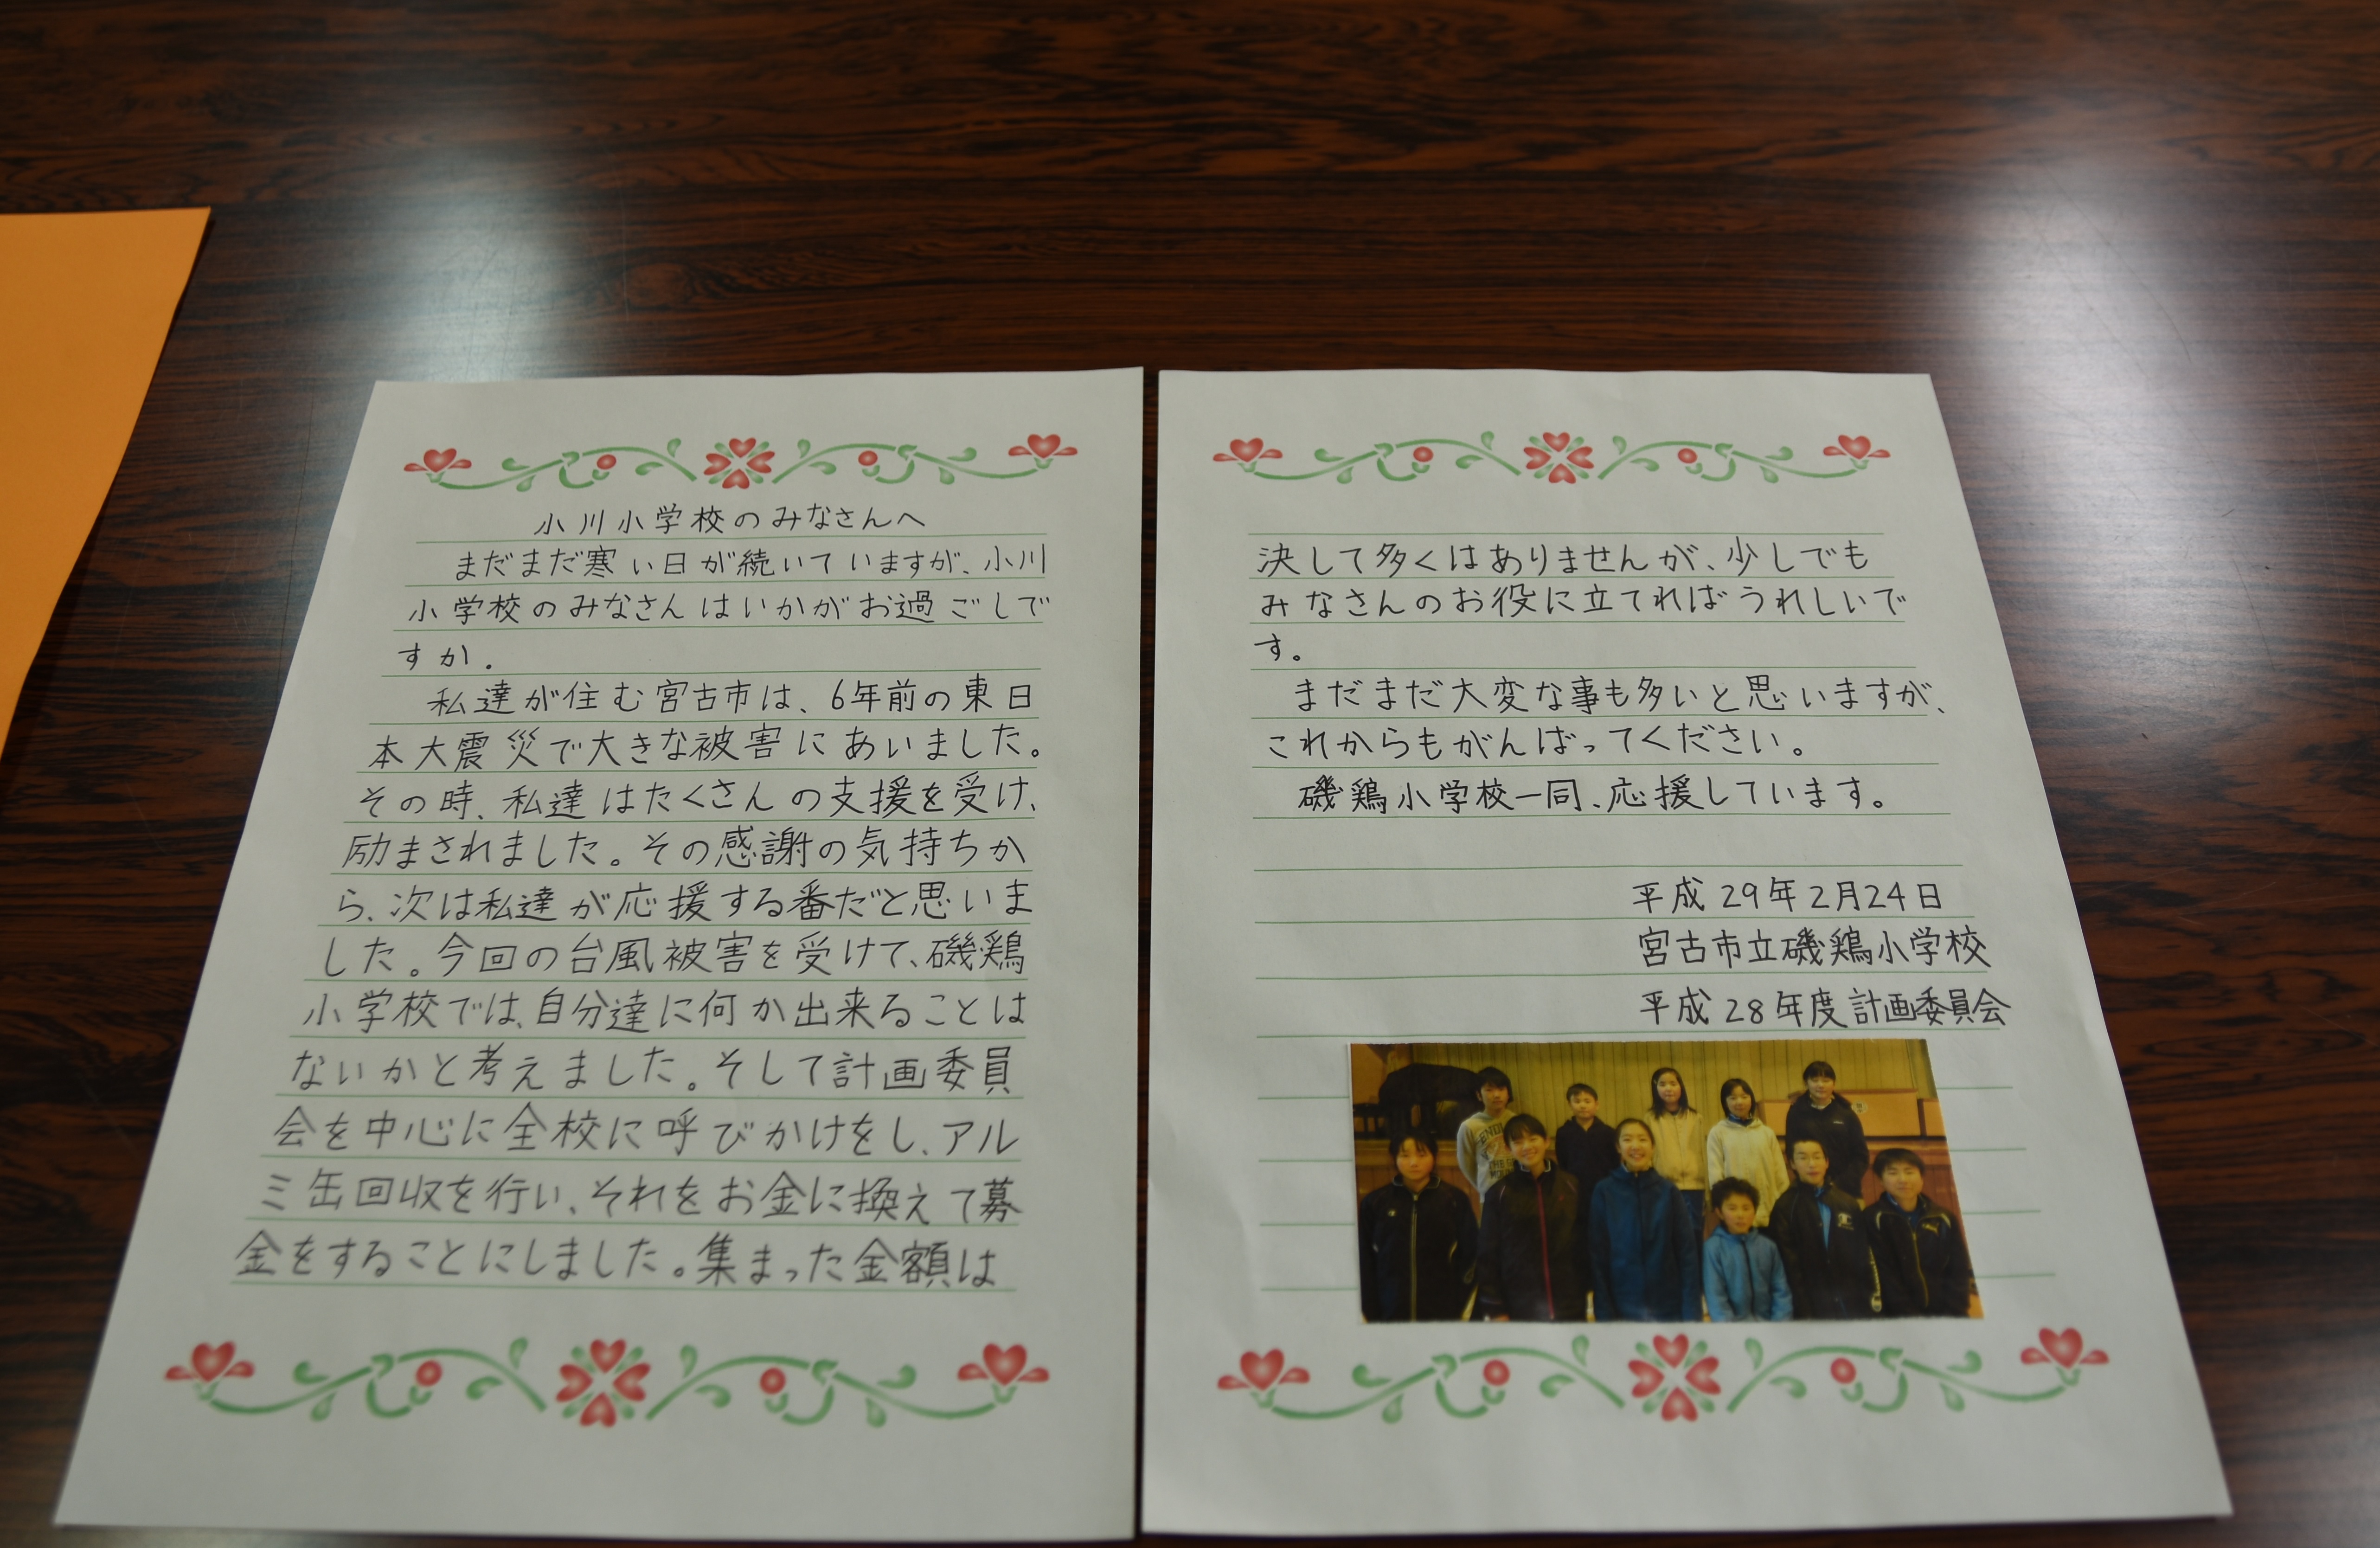 小川小学校のみなさんへ
まだまだ寒い日が続いていますが、小川
小学校のみなさんはいかがお過ごしで
すか。
私達が住む宮古市は、6年前の東日
本大震災で大きな被害にあいました。
その時、私達はたくさんの支援を受け、
励まされました。その感謝の気持ちか
ら、次は私達が応援する番だと思いま
した。今回の台風被害を受けて、磯鶏
小学校では、自分達に何か出来ることは
ないかと考えました。そして計画委員
会を中心に全校に呼びかけをし、アル
ミ缶回収を行い、それをお金に換えて募
金をすることにしました。集まった金額は
決して多くはありませんが、少しでも
みなさんのお役に立てればうれしいで
す。
まだまだ大変な事も多いと思いますが、
これからもがんばってください。
磯鶏小学校一同、応援しています。
平成29年2月24日
宮古市立磯鶏小学校
平成28年度計画委員会